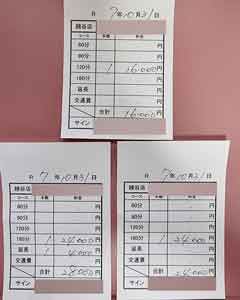 R 7年10月31日
錦谷店
コース 本数 金額
60分 円
90分 円
120分 1 16,000円
180分 円
延長 円
交通費 円
合計 16,000円
サイン
R 7年10月31日
錦谷店
コース 本数 金額
60分 円
90分 円
120分 円
180分 1 24,000円
延長 1 4,000円
交通費 円
合計 28,000円
サイン
R 7年10月31日
錦谷店
コース 本数 金額
60分 円
90分 円
120分 円
180分 1 24,000円
延長 円
交通費 円
合計 24,000円
サイン